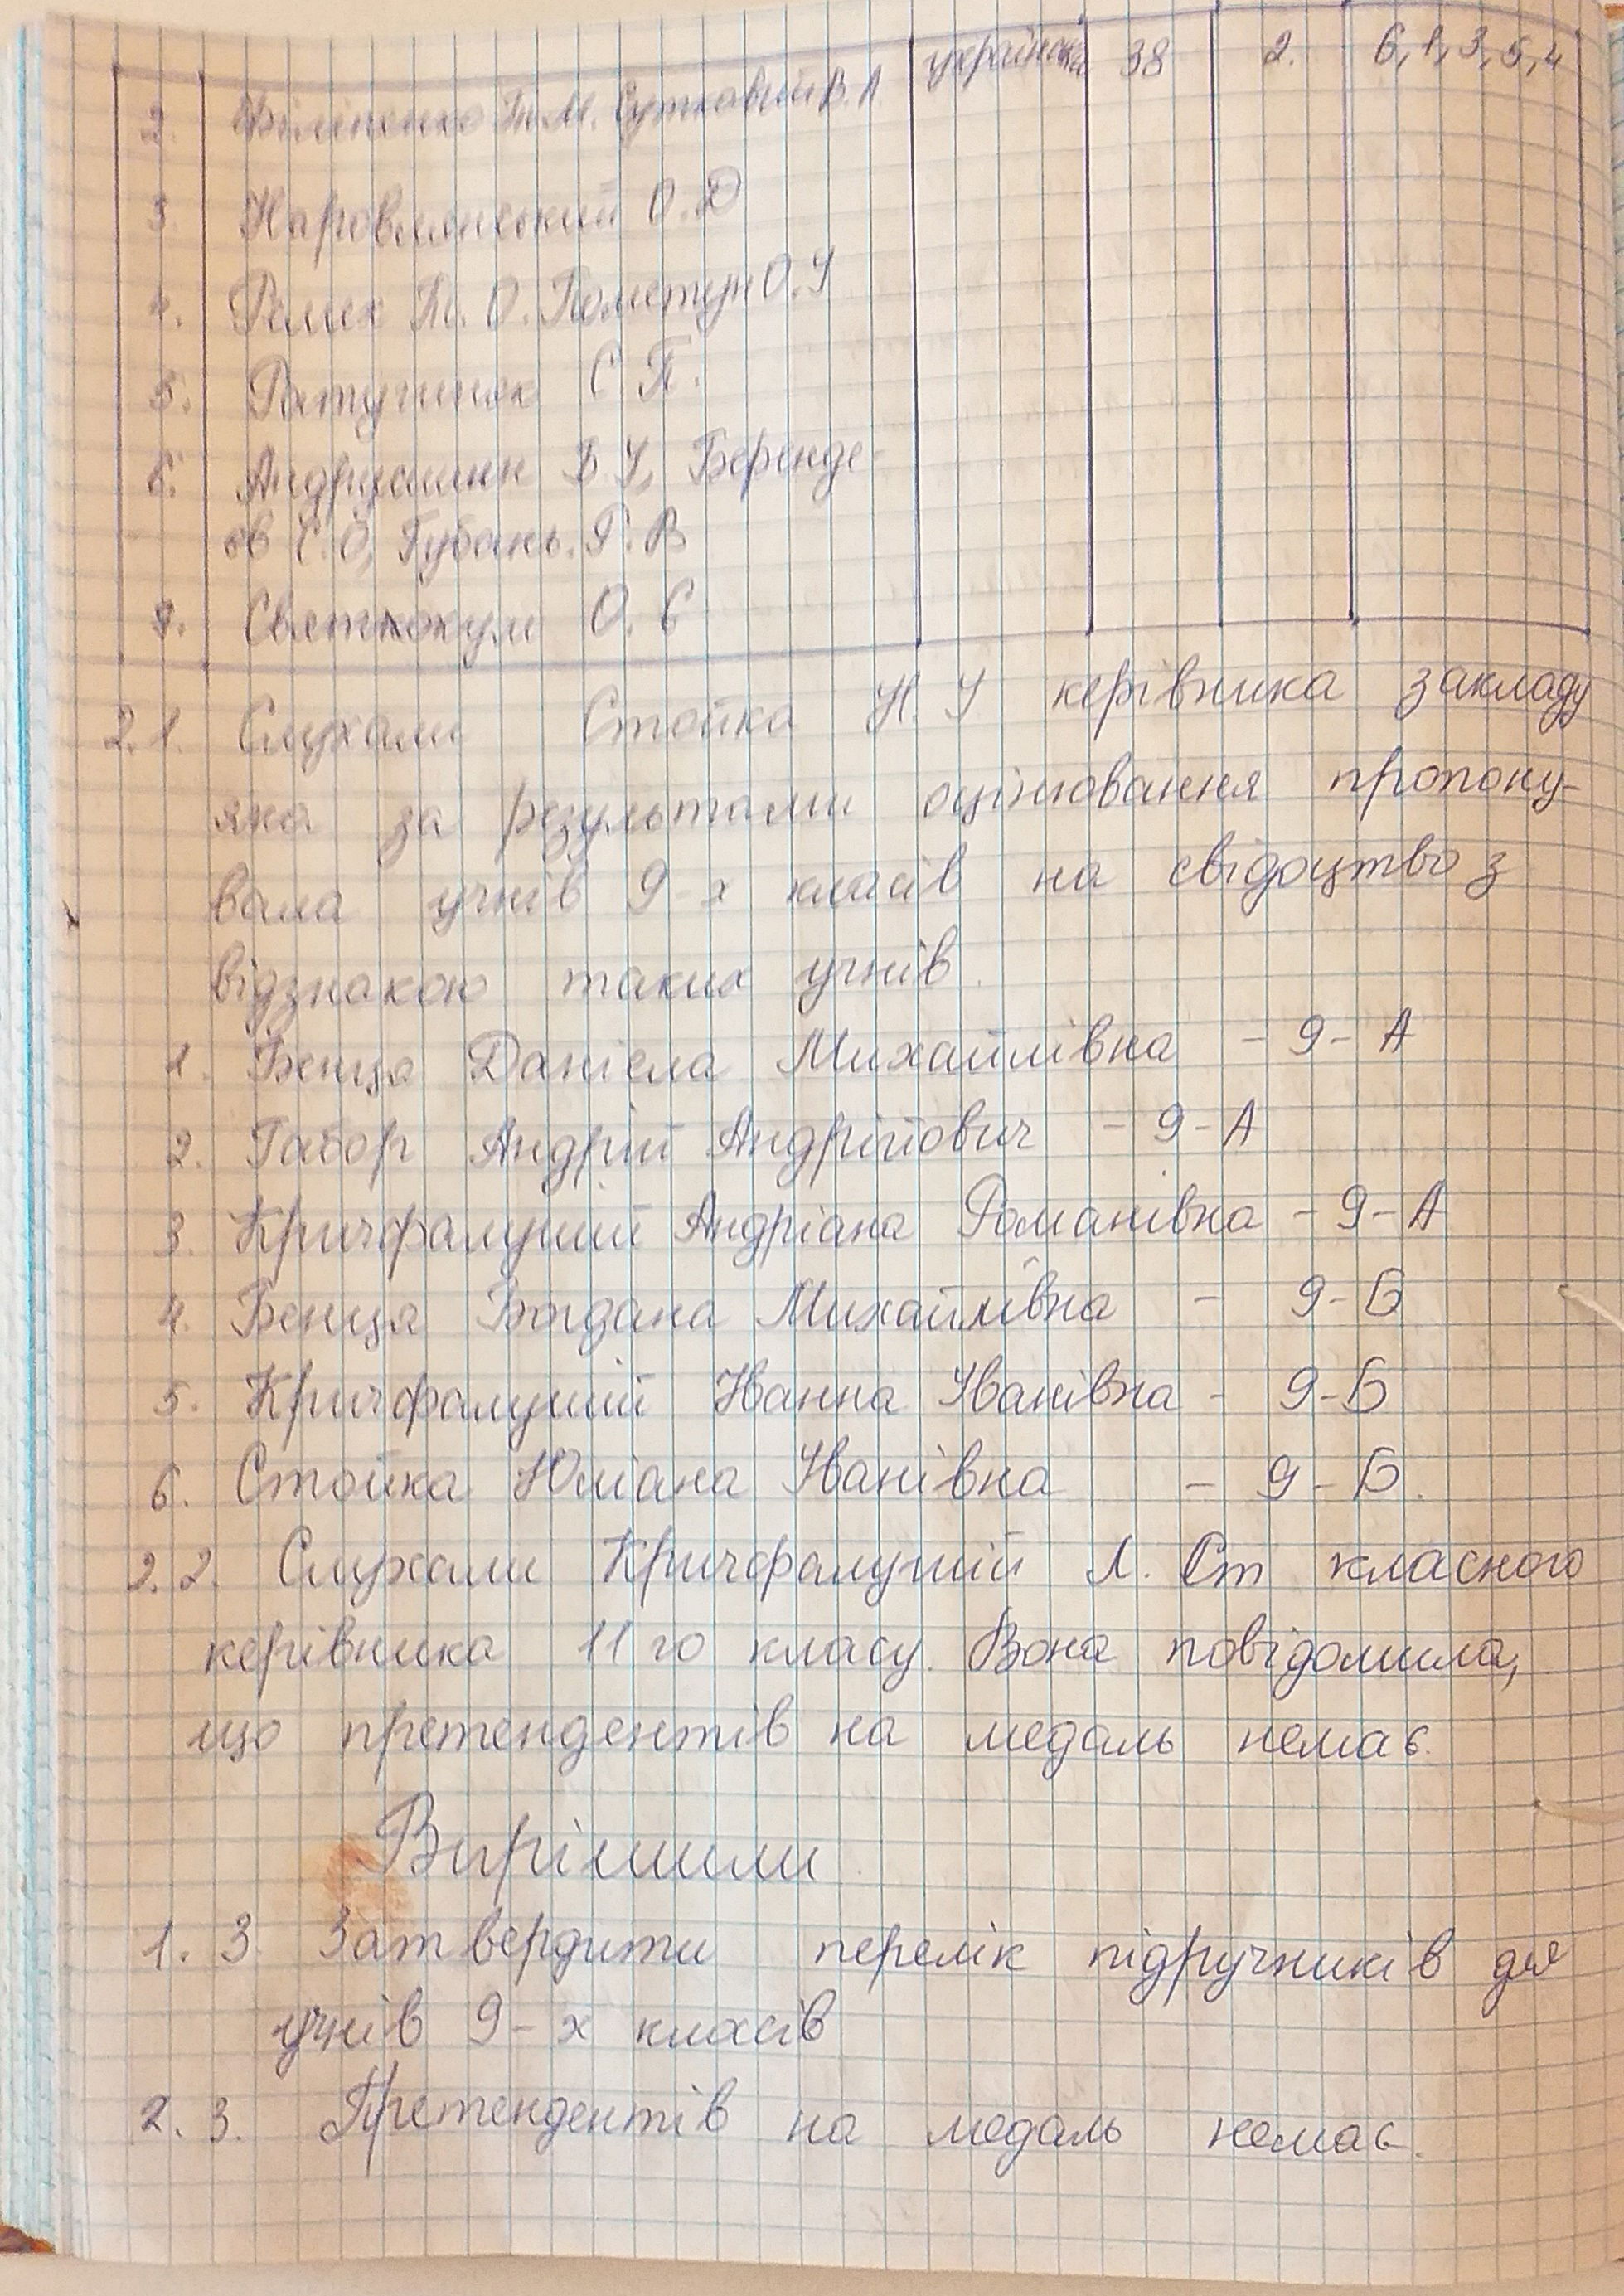 2. Філіпенко Т.М. Сутковий В.Л. українська 38 2. 6, 1, 3, 5, 4
3. Наровлянський О.Д
4. Ремех Т. О. Пометун О.І
5. Ратушняк С П.
6. Андрусишин Б І, Беренде-
єв С.О, Губань. Г. В
7. Святокум О. Є
2.1. Слухали Стойка Н. І керівника закладу
яка за результатами оцінювання пропону-
вала учнів 9-х класів на свідоцтво з
відзнакою таких учнів.
1. Бенца Даніела Михайлівна - 9-А
2. Габор Андрій Андрійович - 9-А
3. Кричфалушій Андріана Романівна - 9-А
4. Бенца Богдана Михайлівна - 9-Б
5. Кричфалушій Іванна Іванівна - 9-Б
6. Стойка Юліана Іванівна - 9-Б.
2.2. Слухали Кричфалушій Л. Ст класного
керівника 11 го класу. Вона повідомила,
що претендентів на медаль немає.
Вирішили
1. 3. Затвердити перелік підручників для
учнів 9-х класів
2. 3. Претендентів на медаль немає.